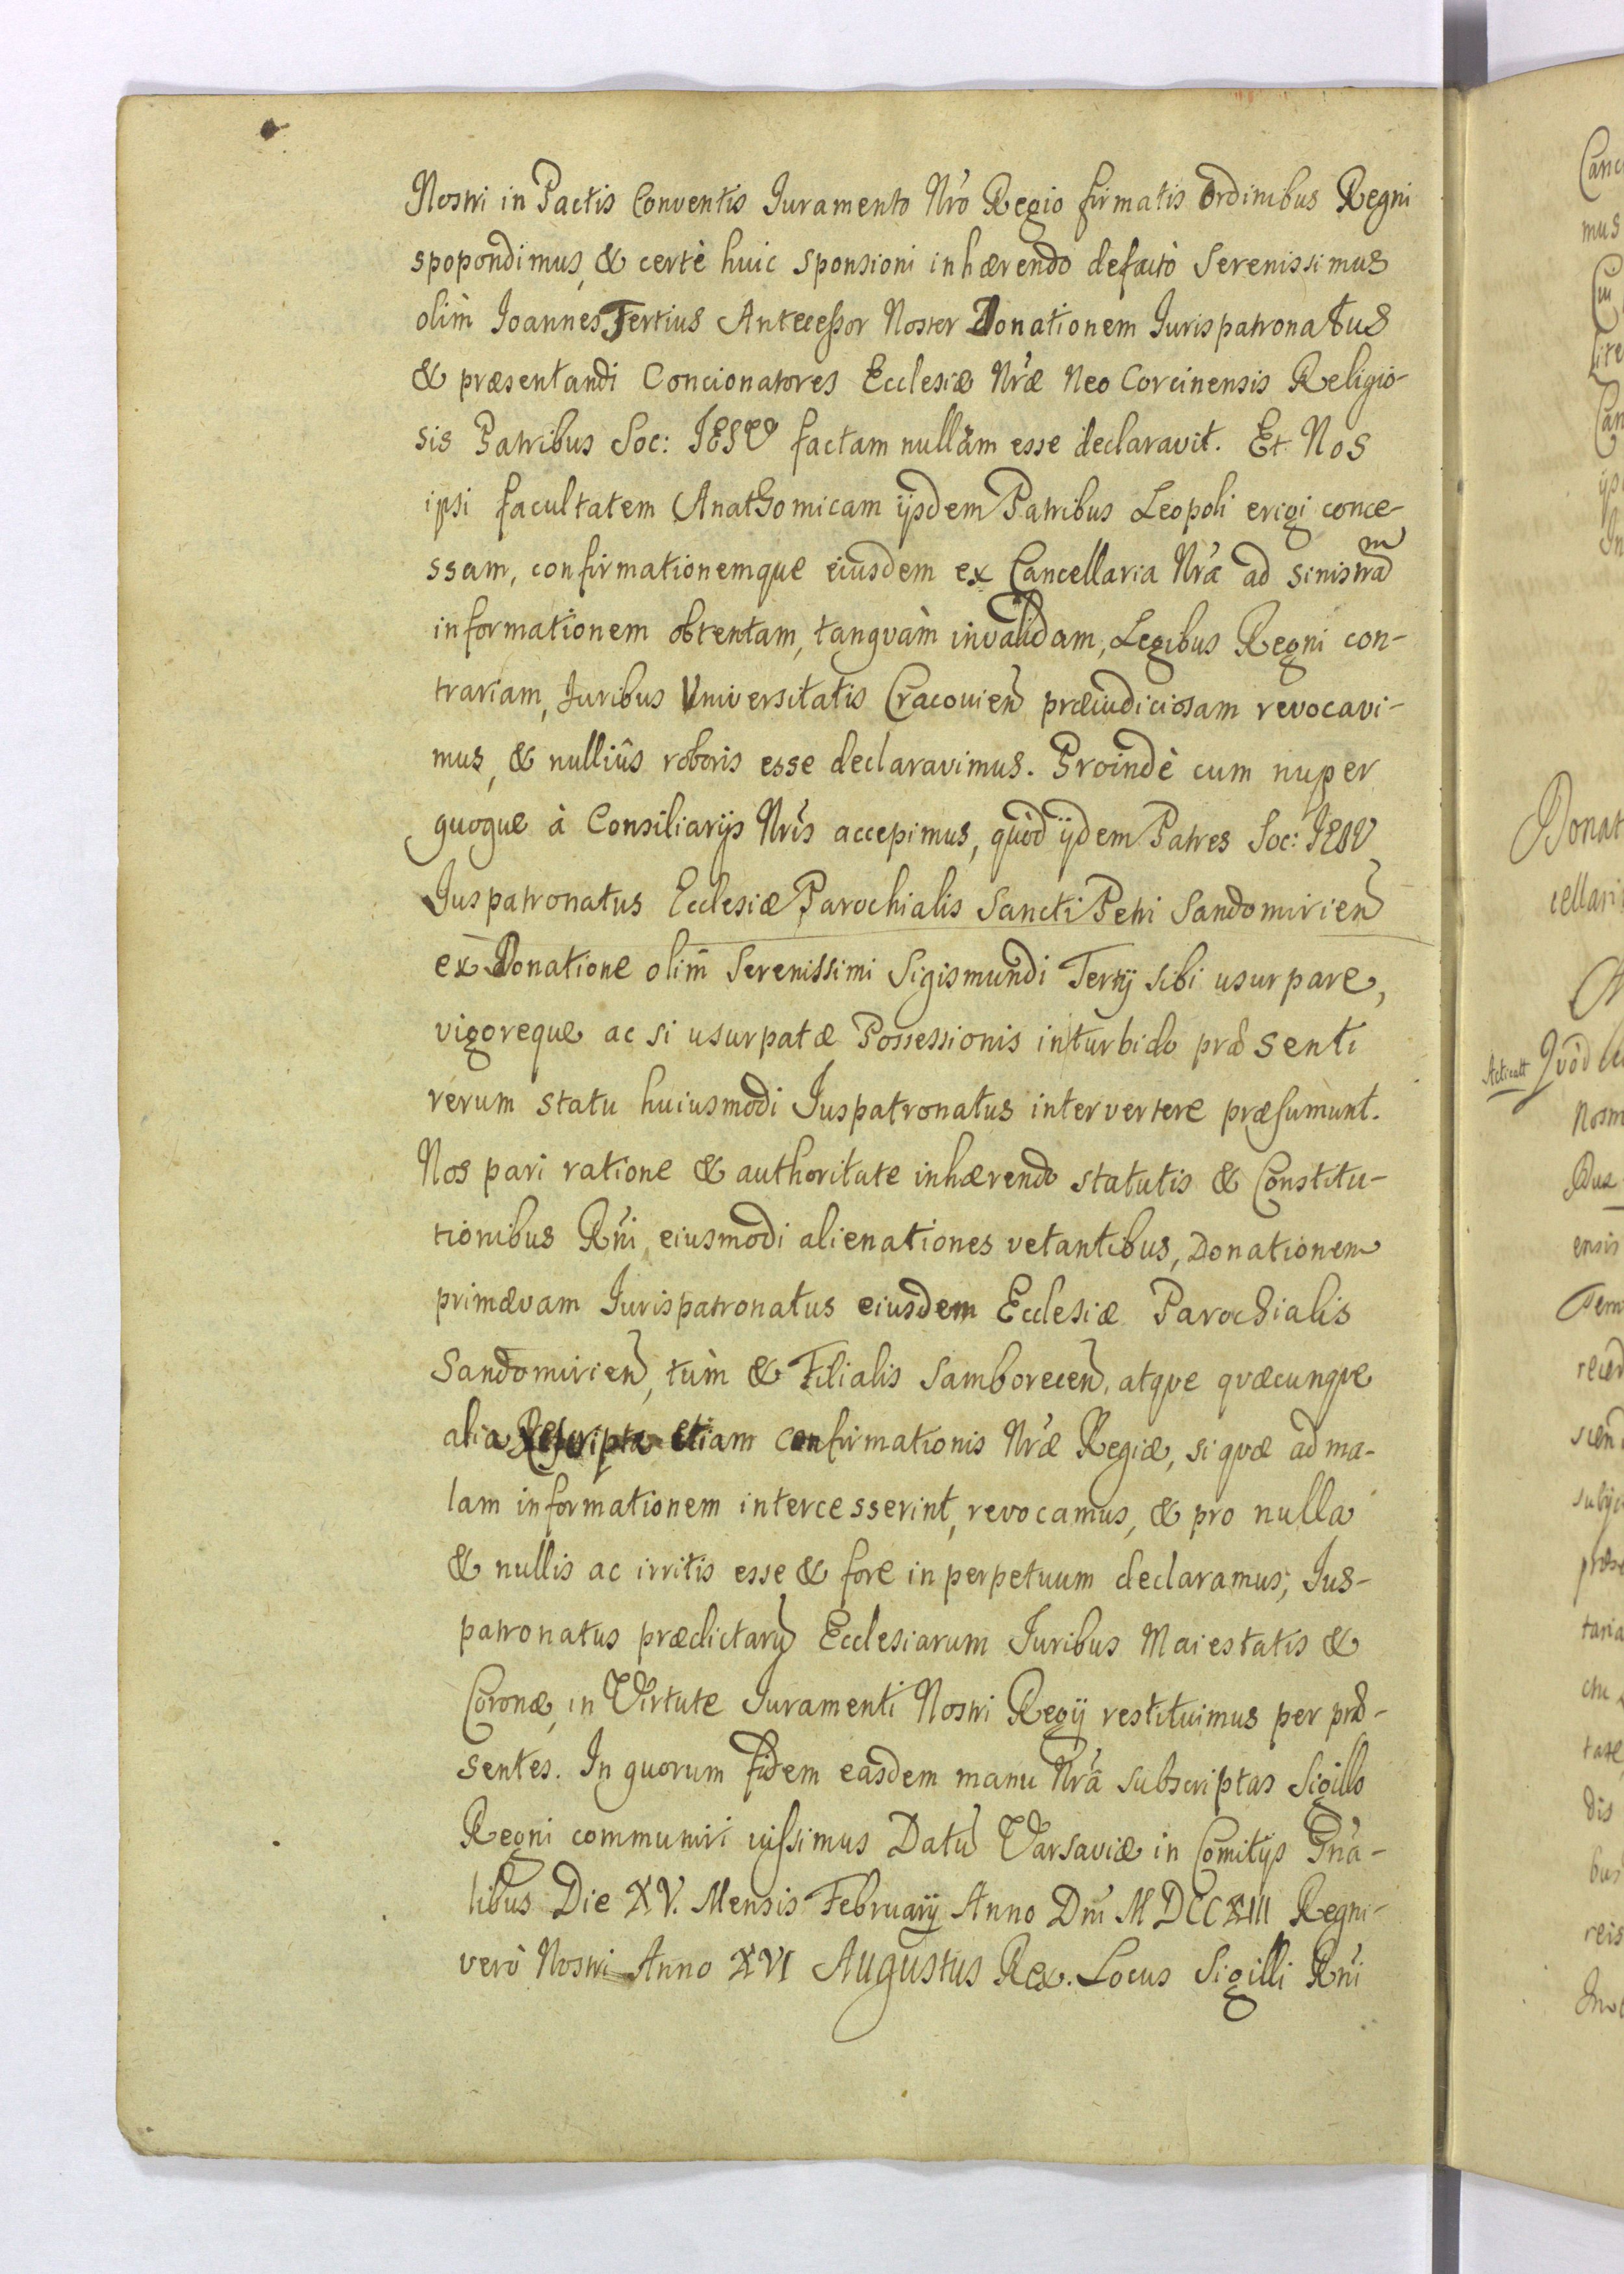 Nostri in Pactis Conventis Juramento Nr̃o Regio firmatis Ordinibus Regni
spopondimus, & certè huic sponsioni inhærendo defactò Serenissimus
olim̀ Joannes Tertius Antecessor Noster Donationem Jurispatronatus
& præsentandi Concionatores Ecclesiæ Nr̃æ Neo Corcinensis Religio-
sis Patribus Soc: JESU factam nullam esse declaravit. Et Nos
ipsi facultatem Anathomicam ijsdem Patribus Leopoli erigi conce-
ssam, confirmationemque eiusdem ex Cancellaria Nr̃a ad sinistram
informationem obtentam, tanqvàm invalidam, Legibus Regni con-
trariam, Juribus Universitatis Cracovien̄ præiudiciosam revocavi-
mus, & nulliûs roboris esse declaravimus. Proindè cum nuper
quoque à Consiliarijs Nr̃is accepimus, quòd ijdem Patres Soc: JESU
Juspatronatus Ecclesiæ Parochialis Sancti Petri Sandomirien̄
ex Donatione olim̀ Serenissimi Sigismundi Tertij sibi usurpare,
vigoreque ac si usurpatæ Possessionis inturbido præsenti
rerum statu huiusmodi Juspatronatus intervertere præsumunt.
Nos pari ratione & authoritate inhærendo statutis & Constitu-
tionibus Rñi, eiusmodi alienationes vetantibus, Donationem
primævam Jurispatronatus eiusdem Ecclesiæ Parochialis
Sandomirien̄, tùm & Filialis Samborecen̄, atqve qvæcunqve
alia Rescripta etiam confirmationis Nr̃æ Regiæ, si qvæ ad ma-
lam informationem intercesserint, revocamus, & pro nulla
& nullis ac irritis esse & fore in perpetuum declaramus; Jus-
patronatus prædictarū Ecclesiarum Juribus Maiestatis &
Coronæ, in Virtute Juramenti Nostri Regij restituimus per præ-
sentes. In quorum fidem easdem manu Nr̃a subscriptas Sigillo
Regni communiri iussimus Datū Varsaviæ in Comitijs Gñra-
libus Die XV. Mensis Februarij Anno Dñi MDCCXIII Regni
verò Nostri Anno XVI Augustus Rex. Locus Sigilli Rñi
Donat
cellari
Acticatt Qvòd
ensis